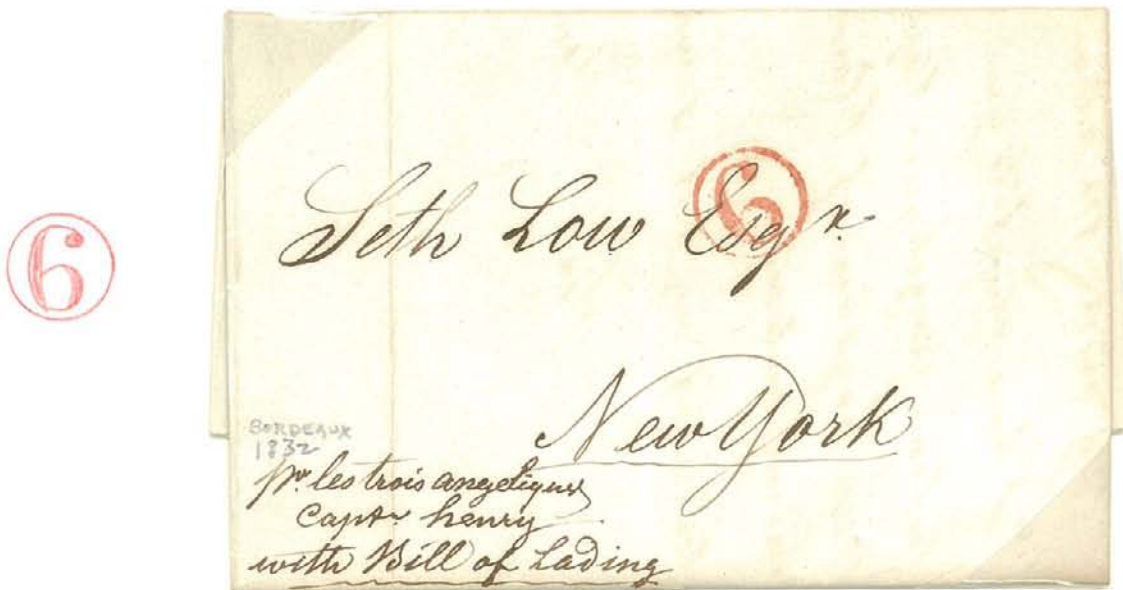 6
6
Seth Low Esqr.
New York
BORDEAUX
1832
pr. les trois angeliques
Captn henry
with Bill of Lading